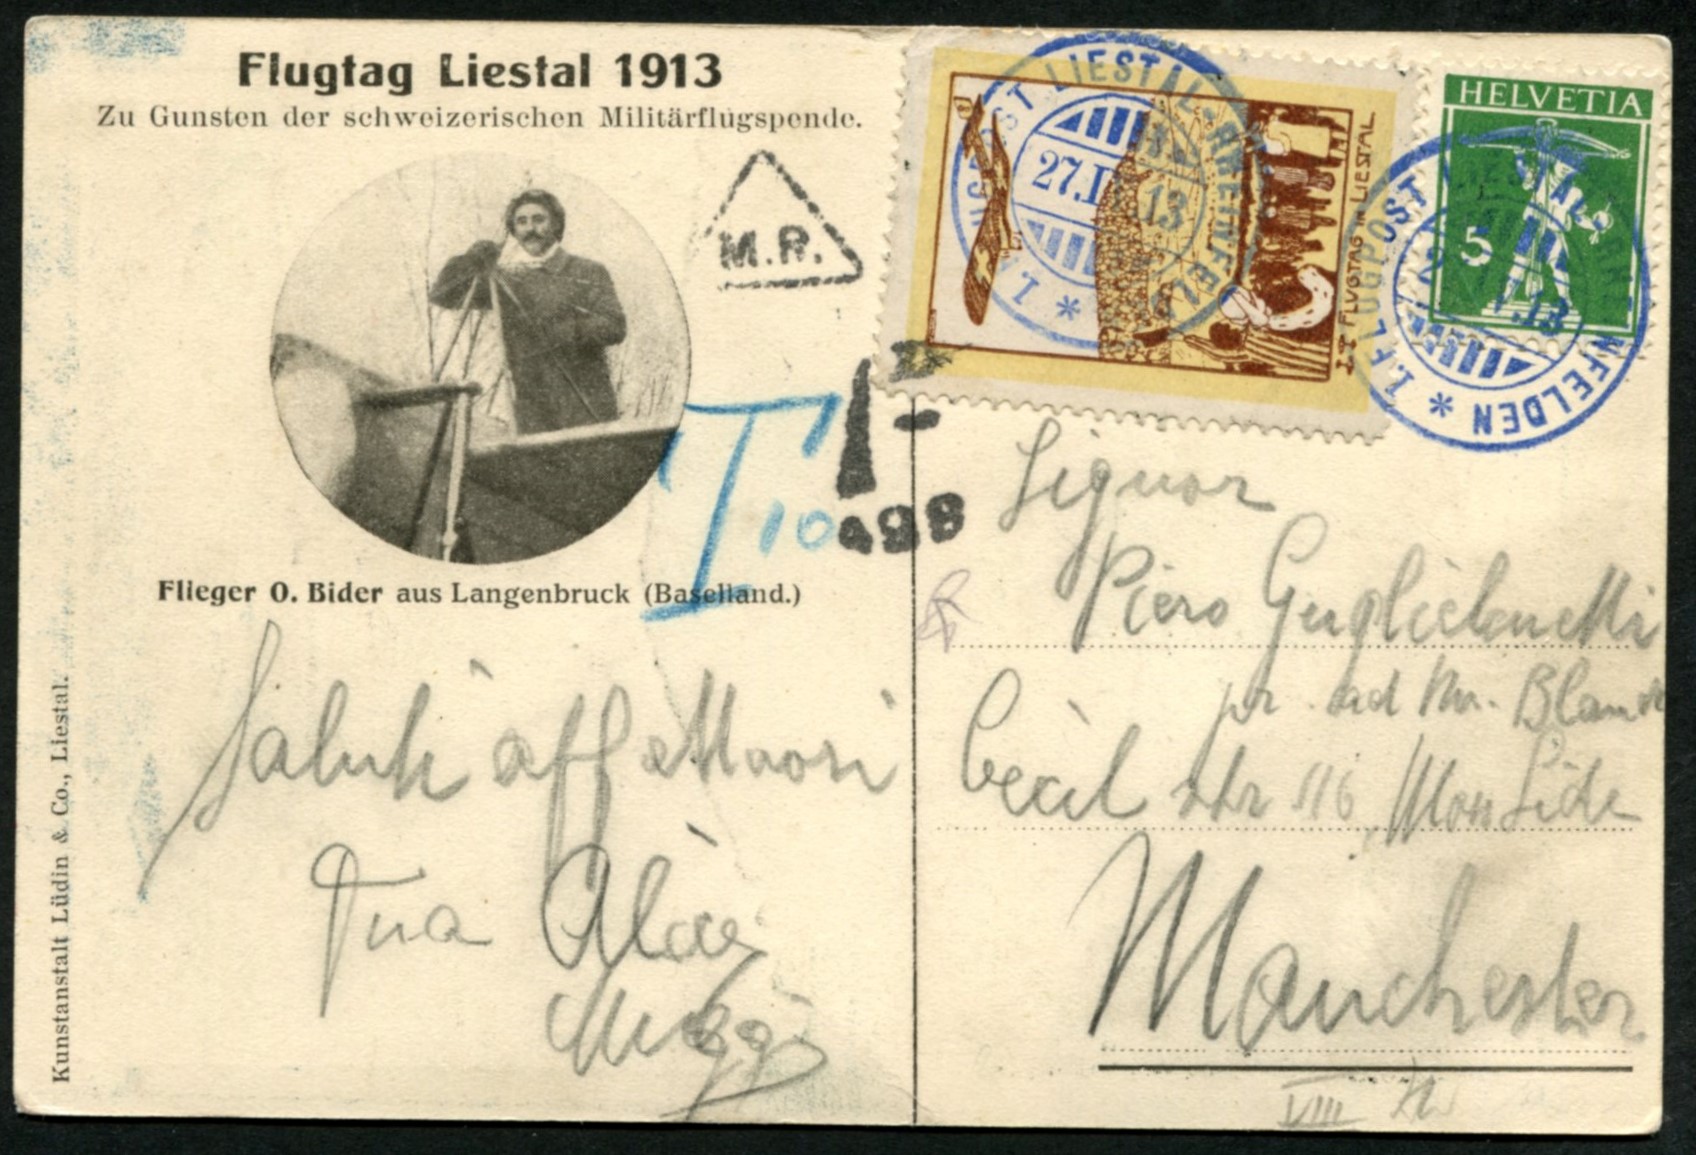 Flugtag Liestal 1913
Zu Gunsten der schweizerischen Militärflugspende.
M.R.
1. FLUGPOST LIESTAL-RHEINFELDEN *
27.IV.13
1. FLUGTAG IN LIESTAL
HELVETIA
5
1. FLUGPOST LIESTAL-RHEINFELDEN *
27.IV.13
T 10
T
498
Flieger O. Bider aus Langenbruck (Baselland.)
Saluti affettuosi
Tua Alice
Signor
Piero Guglielmetti
pr. ad Mr.
Cecil str 116 Moss Side
Manchester
VIII
Kunstanstalt Lüdin & Co., Liestal.